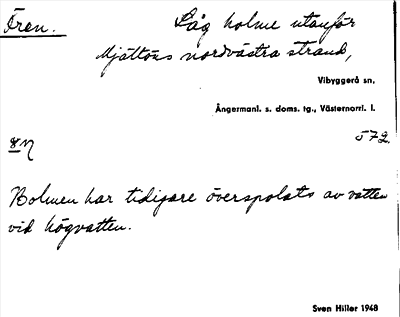 Ären. Låg holme utanför
Mjältöns nordvästra strand,
Vibyggerå sn,
Ångermanl. s. doms. tg., Västernorrl. l.
572.
Holmen har tidigare överspolats av vatten
vid högvatten.
Sven Hiller 1948